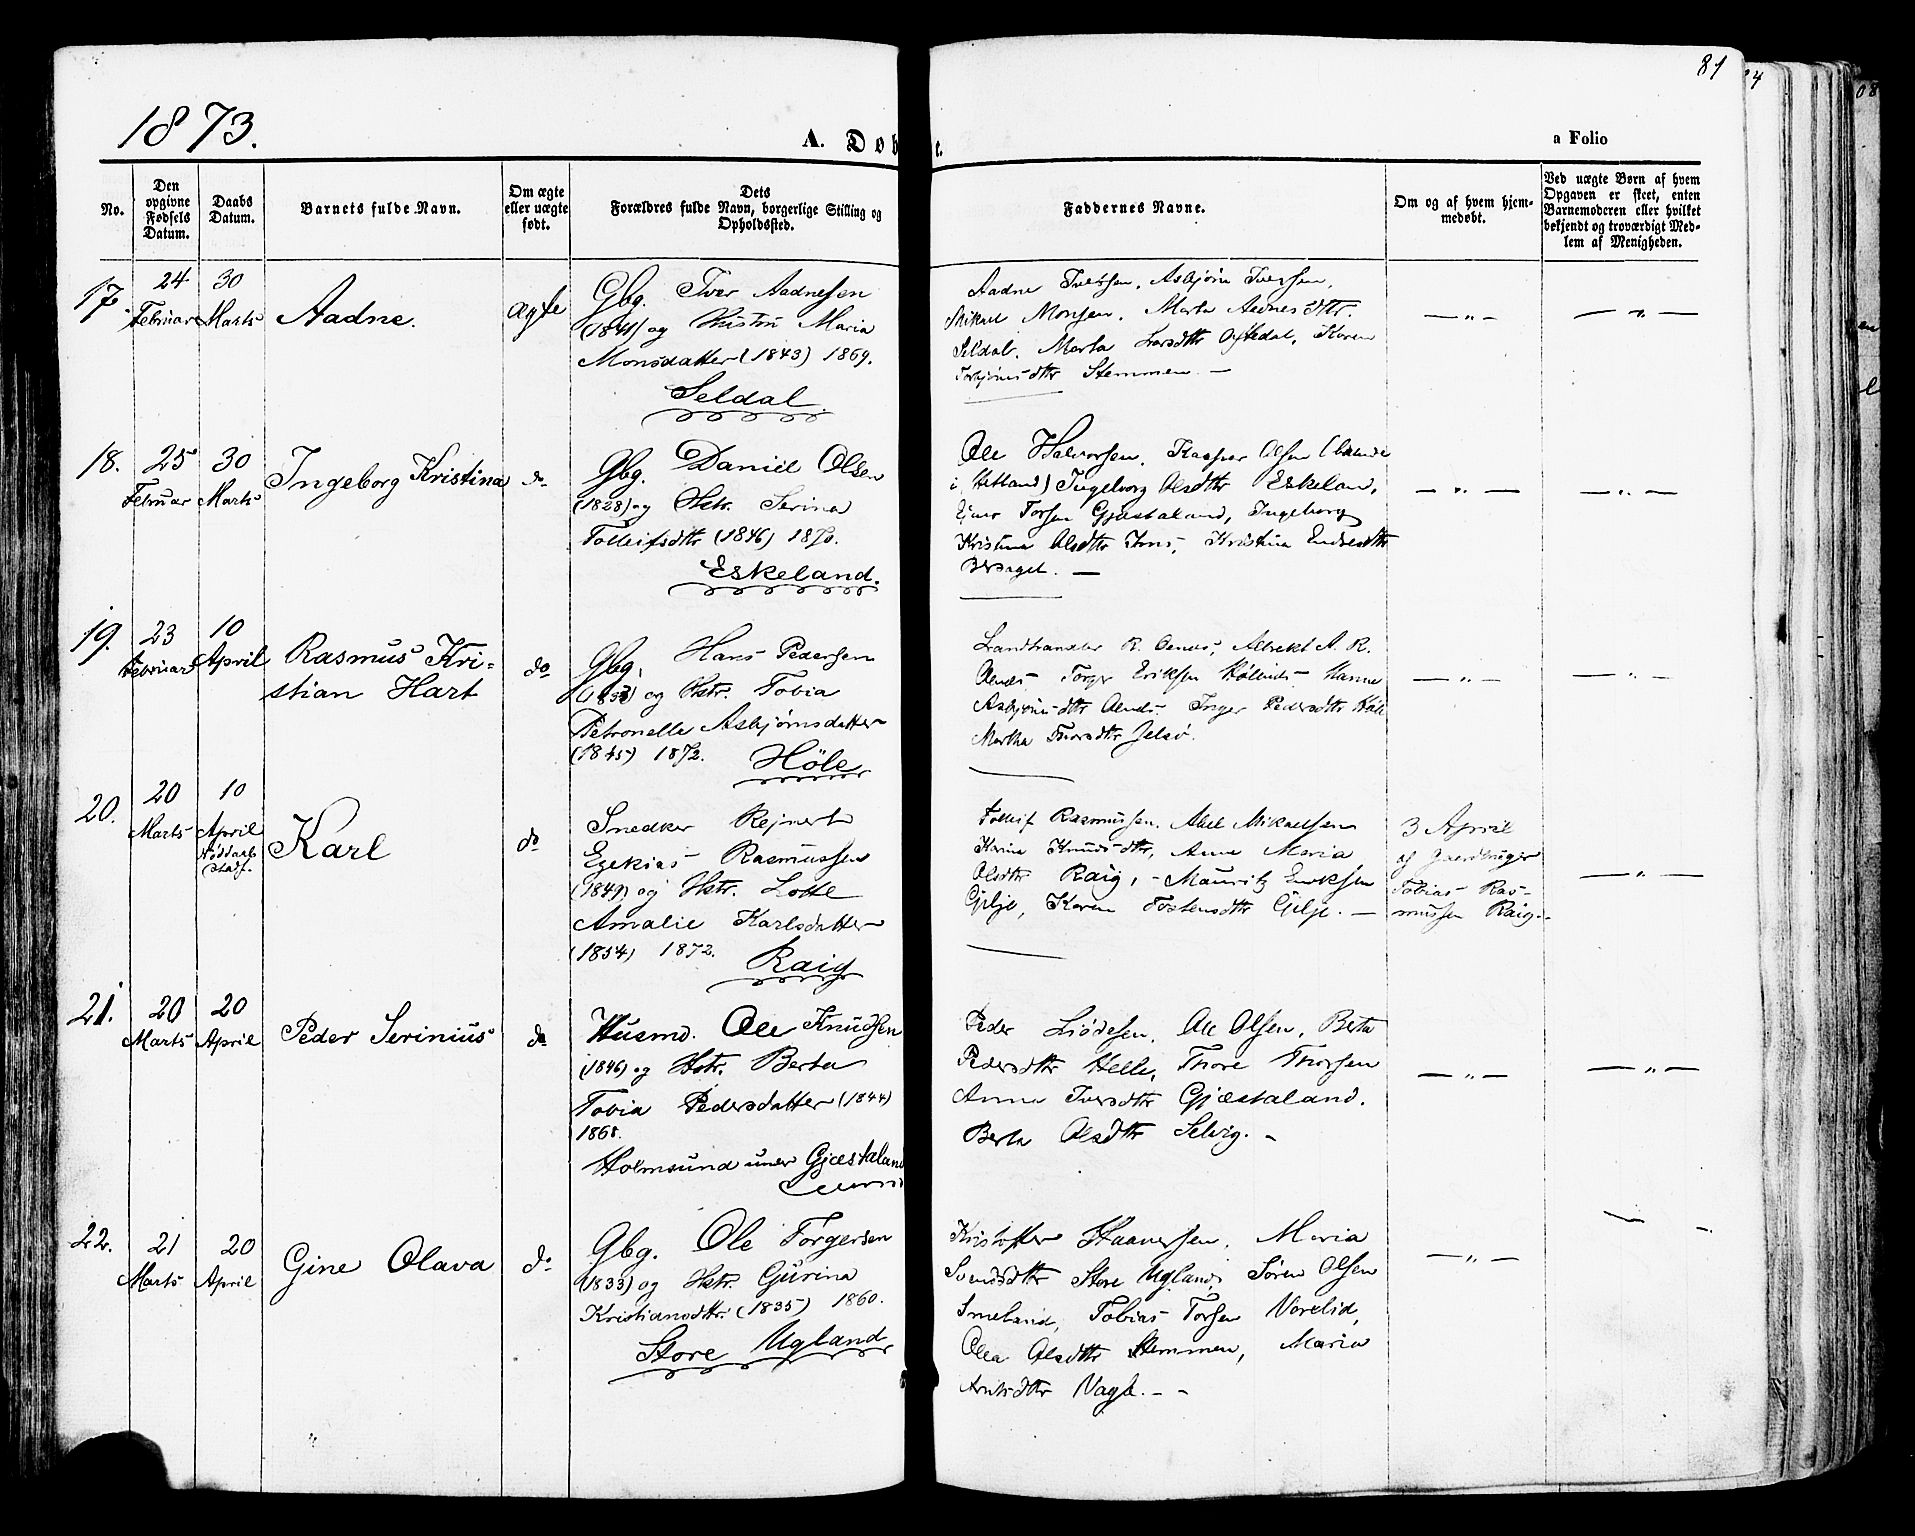 81
1873.
A. Døb
t.
a Folio
No.
Den opgivne Fødsels Datum.
Daabs Datum.
Barnets fulde Navn.
Om ægte eller uægte født.
Dets Forældres fulde Navn, borgerlige Stilling og Opholdssted.
Faddernes Navne.
Om og af hvem hjemmedøbt.
Ved uægte Børn af hvem Opgaven er skeet, enten Barnemoderen eller hvilket bekjendt og troværdigt Medlem af Menigheden.
17.
24 Februar
30 Marts
Aadne.
ægte
Gbg. Iver Aadnesen
(1841) og Hustru Maria
Monsdatter (1843) 1869.
Seldal
Aadne Iversen, Asbjørn Iversen,
Mikael Monsen, Marta Aadnesdttr.
Seldal, Marta Larsdttr Oftedal, Karen
Torbjørnsdttr Stemmen. —
— " —
— " —
18.
25 Februar
30 Marts
Ingeborg Kristina
do
Gbg. Daniel Olsen
(1828) og Hstr. Serina
Tolleifsdttr (1846) 1870.
Eskeland.
Ole Halvorsen, Kasper Olsen (boende
i Hetland) Ingeborg Olsdttr Eskelan,
Ejner Torsen Gjæstaland, Ingeborg
Kristina Olsdttr Ims, Kristina Endresdttr
Bersagel. —
— " —
— " —
19.
23 Februar
10 April
Rasmus Kri-
stian Hart
do
Gbg. Hans Pedersen
og Hstr. Tobia
Petronelle Asbjørnsdatter
(1845) 1872.
Höle
Landhandler R. Aenes, Albrekt A. R.
Aenes, Torger Eriksen Hanna
Asbjørnsdttr Aenes. Inger Pedersdttr Höle
Martha Thorsdttr Jelsö.
— " —
— " —
20.
20 Marts
10 April
Karl
do
Snedker Rejnert
Ezekias Rasmussen
(1849) og Hstr. Lotte
Amalie Karlsdatter
(1854) 1872.
Raig
Tolleif Rasmussen, Abel Mikaelsen
Karina Knudsdttr, Anne Maria
Olsdttr Raig, — Mauritz Eriksen
Gilje, Karen Tostensdttr Gilje. —
3 April
af Gaardbruger
Tobias Ras-
mussen Raig.
— " —
21.
20 Marts
20 April
Peder Serinius
do
Husmd. Ole Knudsen
(1846) og Hstr. Berta
Tobia Pedersdatter (1844)
1868.
Holmsund under Gjæstaland
Peder Ole Olsen, Berta
Pedersdttr Helle, Thore Thorsen
Anna Iversdttr Gjæstaland.
Berta Olsdttr Selvig. —
— " —
— " —
22.
21 Marts
20 April
Gine Olava
do
Gbg. Ole Torgersen
(1833) og Hstr. Gurina
Kristiansdttr. (1835) 1860.
Store Ugland
Kristoffer Haaversen, Maria
Svendsdttr Store Ugland, Sören Olsen
Smeland, Tobias Torsen Norelid,
Olea Olsdttr Stemmen, Maria
Arntsdttr Vagle. — -
— " —